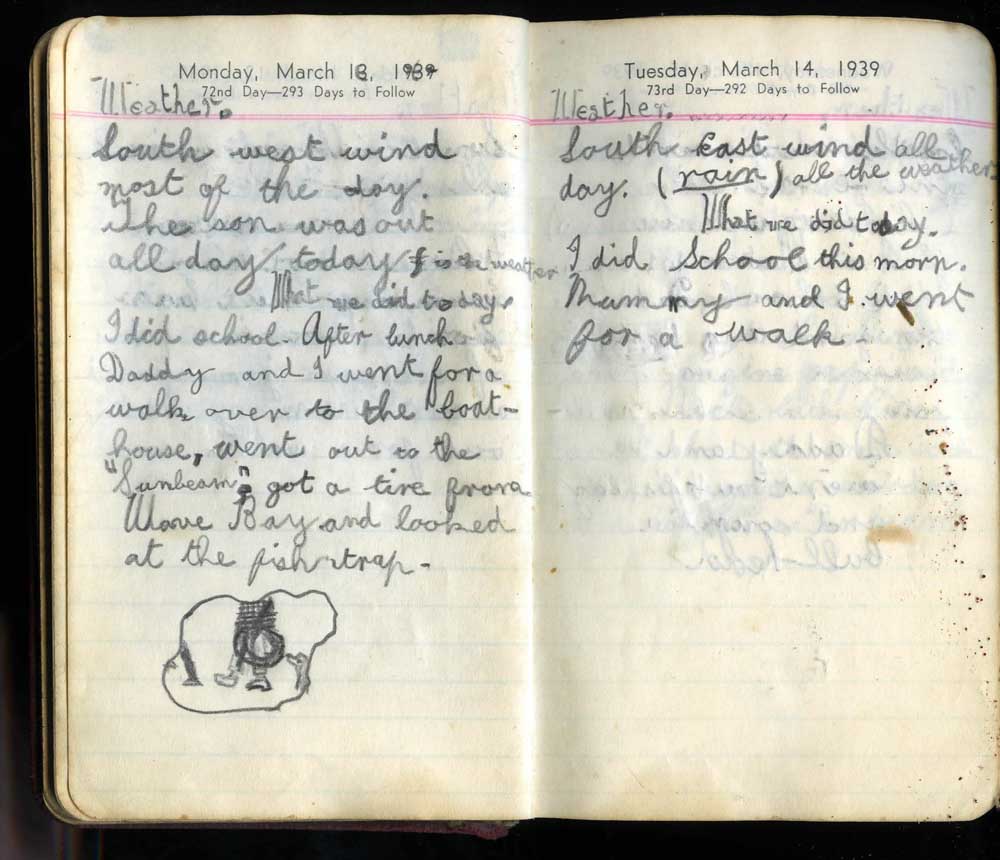 Monday, March 13, 1939
72nd Day—293 Days to Follow
Weather.
South west wind
most of the day.
The son was out
all day today is the weather
What we did today
I did school. After lunch
Daddy and I went for a
walk over to the boat-
house, went out to the
"Sunbeam" got a tire from
Wave Bay and looked
at the fish-trap-
Tuesday, March 14, 1939
73rd Day—292 Days to Follow
Weather.
South East wind all
day. (rain) all the weather.
What we did today.
I did School this morn.
Mummy and I went
for a walk.